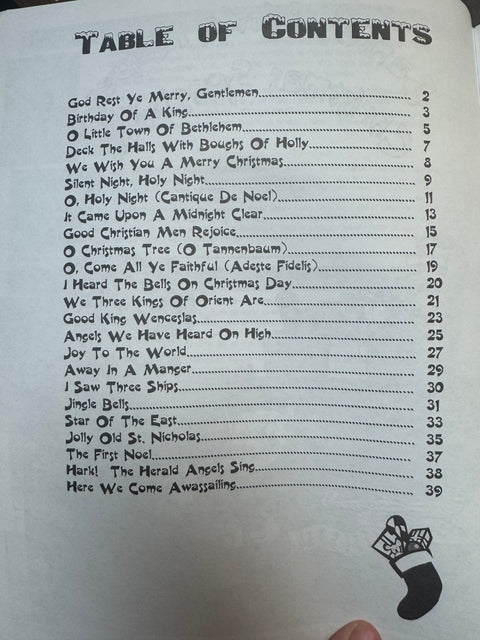 Table of Contents
God Rest Ye Merry, Gentlemen 2
Birthday Of A King 3
O Little Town Of Bethlehem 5
Deck The Halls With Boughs Of Holly 7
We Wish You A Merry Christmas 8
Silent Night, Holy Night 9
O, Holy Night (Cantique De Noel) 11
It Came Upon A Midnight Clear 13
Good Christian Men Rejoice 15
O Christmas Tree (O Tannenbaum) 17
O, Come All Ye Faithful (Adeste Fidelis) 19
I Heard The Bells On Christmas Day 20
We Three Kings Of Orient Are 21
Good King Wenceslas 23
Angels We Have Heard On High 25
Joy To The World 27
Away In A Manger 29
I Saw Three Ships 30
Jingle Bells 31
Star Of The East 33
Jolly Old St. Nicholas 35
The First Noel 37
Hark! The Herald Angels Sing 38
Here We Come Awassailing 39